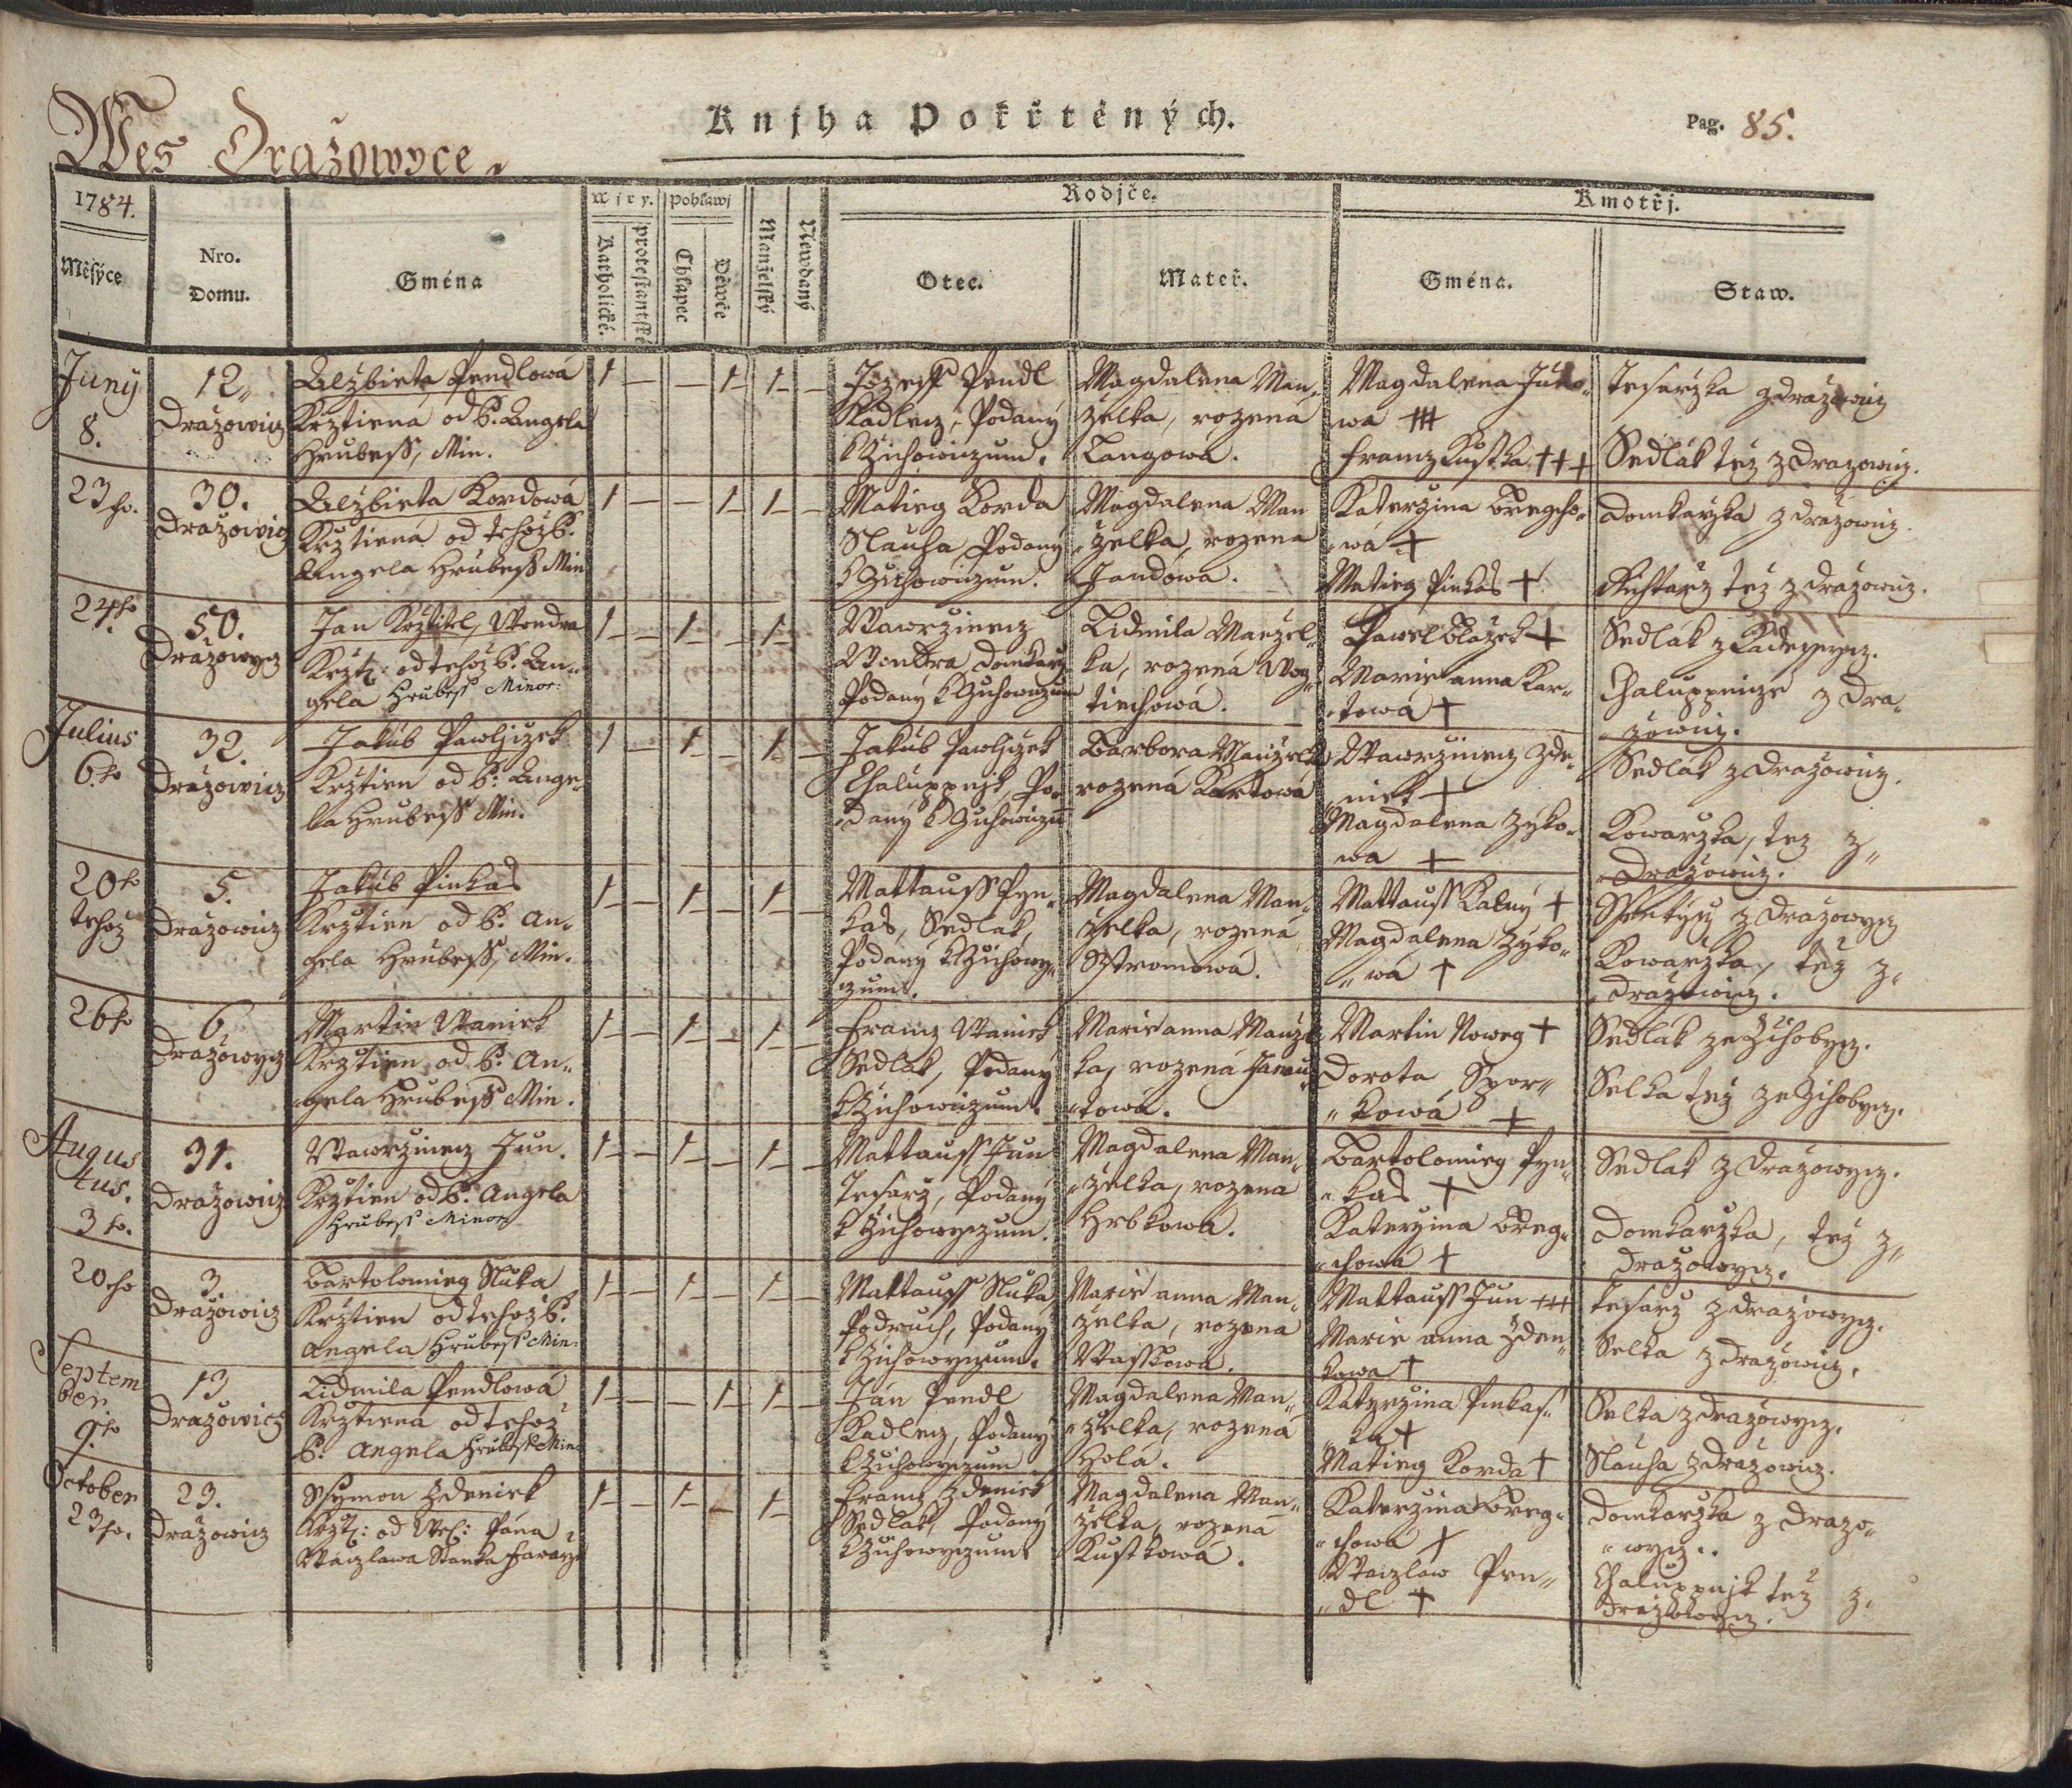 Wes Dražowyce.
Knjha Pokřtěných.
Pag. 85.
1784.
Měsýce
Nro. Domu.
Gména
Wjry.
Katholické.
protestantské
Pohlawj
Chlapec
Děwče
Manželský
Newdaný
Rodjče.
Otec.
Mateř.
Kmotřj.
Gména.
Staw.
Juny
8.
12
Dražowicz
Alžbieta Pendlowá
Krztiená od P. Angela
Hrubess, Min.
1 — — 1 1 —
Jozeff Pendl
Kadlecz, Podaný
k Zichowiczum.
Magdalena Man-
želka, rozená
Langowá.
Magdalena Juno-
wa +++
Francz Kustka +++
Tesarzka z Dražowicz
Sedlák téz z Drazowicz.
23ho.
30.
Dražowicz
Alžbieta Kordowá
Krztiená od téhož P.
Angela Hrubess Min
1 — — 1 1 —
Matieg Korda
Slauha, Podaný
k Zichowiczum.
Magdalena Man
želka, rozena
Jandowa.
Katerzina Bregcho-
wá +
Matieg Pinkas +
Domkarzka z Dražowicz.
Richtarz téz z Dražowicz.
24ho
50.
Dražowycz
Jan Krztitel, Wondra
Krzt: od téhož P. An-
gela Hrubess Minor:
1 — 1 — 1
Wawrzinecz
Wondra, Domkarz
Podaný k Zichowiczum
Lidmila Manžel-
ka, rozená Wog-
tiechowá.
Pawel Blažek +
Marie anna Kar-
towá +
Sedlák z Kadessycz.
Chaluppnice z Dra-
žowicz.
Julius
6ho
32.
Dražowicz
Jakub Pawljczek
Krztien od P. Ange-
la Hrubess Min.
1 — 1 — 1 —
Jakub Pawljczek
Chaluppnjk, Po-
daný k Zichowiczu
Barbora Manželka
rozená Kartowá
Wawrzinecz Zde-
niek +
Magdalena Zyko-
wa +
Sedlák z Dražowicz.
Kowarzka, téz z
Dražowicz.
20ho
téhož
5.
Dražowicz
Jakub Pinkas
Krztien od P. An-
gela Hrubess, Min.
1 — 1 — 1 —
Mattauss Pyn-
kas, Sedlak,
Podaný k Zichowy-
czum.
Magdalena Man-
želka, rozená
Systromowá.
Mattauss Kalný +
Magdalena Zyko-
wá +
z Dražowycz
Kowarzka, téz z
Dražowicz.
26ho
6
Dražowycz
Martin Waniek
Krztien od P. An-
gela Hrubess Min.
1 — 1 — 1 —
Francz Waniek
Sedlák, Podaný
k Zichowiczum.
Marie anna Manžel
ka, rozená Janau-
towá.
Martin Noweg +
Dorota Spor-
kowá +
Sedlák ze Žihobycz.
Selka téz ze Žihobycz.
Augus
tus.
3ho.
31.
Dražowicz
Wawrzinecz Jun.
Krztien od P. Angela
Hrubess Minor
1 — 1 — 1 —
Mattauss Jun
Tesarz, Podaný
k Zichowyczum.
Magdalena Man-
želka, rozena
Hrbkowá.
Bartolomieg Pyn-
kas +
Katerzina Breg-
chowá +
Sedlak z Dražowycz.
Domkarzka, téz z
Dražowycz.
20ho
3
Dražowicz
Bartolomieg Sluka
Krztien od téhož P.
Angela Hrubess Min:
1 — 1 — 1 —
Mattauss Sluka,
Podruch, Podaný
k Zichowyczum.
Marie anna Man-
želka, rozena
Wasskowá.
Mattauss Jun +++
Marie anna Zden-
kowa +
Tesarz z Dražowycz.
Selka z Dražowicz.
Septem
ber
9ho
13
Dražowicz
Lidmila Pendlowá
Krztiená od téhož
P. Angela Hrubess Min:
1 — — 1 1 —
Jan Pendl
Kadlecz, Podaný
k Zichowyczum
Magdalena Man-
želka, rozená
Holá.
Katerzina Pinkas-
ka +
Matieg Korda +
Selka z Dražowycz.
Slauha z Dražowicz.
October
23ho.
23.
Dražowicz
Ssymon Zdeniek
Krzt: od Wel: Pána
Waczlawa Stanka Faraže
1 — 1 — 1 —
Francz Zdeniek
Sedlák, Podaný
k Zichowyczum
Magdalena Man-
želka, rozená
Kustkowá.
Katerzina Breg-
chowá +
Waczlaw Pen-
dl +
Domkarzka z Dražo-
wycz.
Chaluppnjk téz z
Dražowycz.